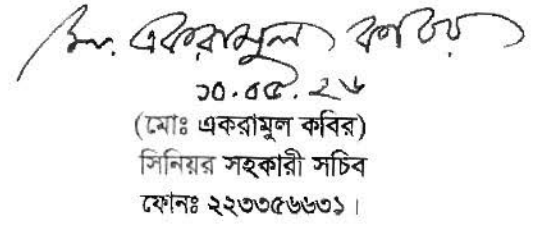 মো. একরামুল কবির
১০.০৫.২৬
(মোঃ একরামুল কবির)
সিনিয়র সহকারী সচিব
ফোনঃ ২২৩৩৫৬৬৩১।